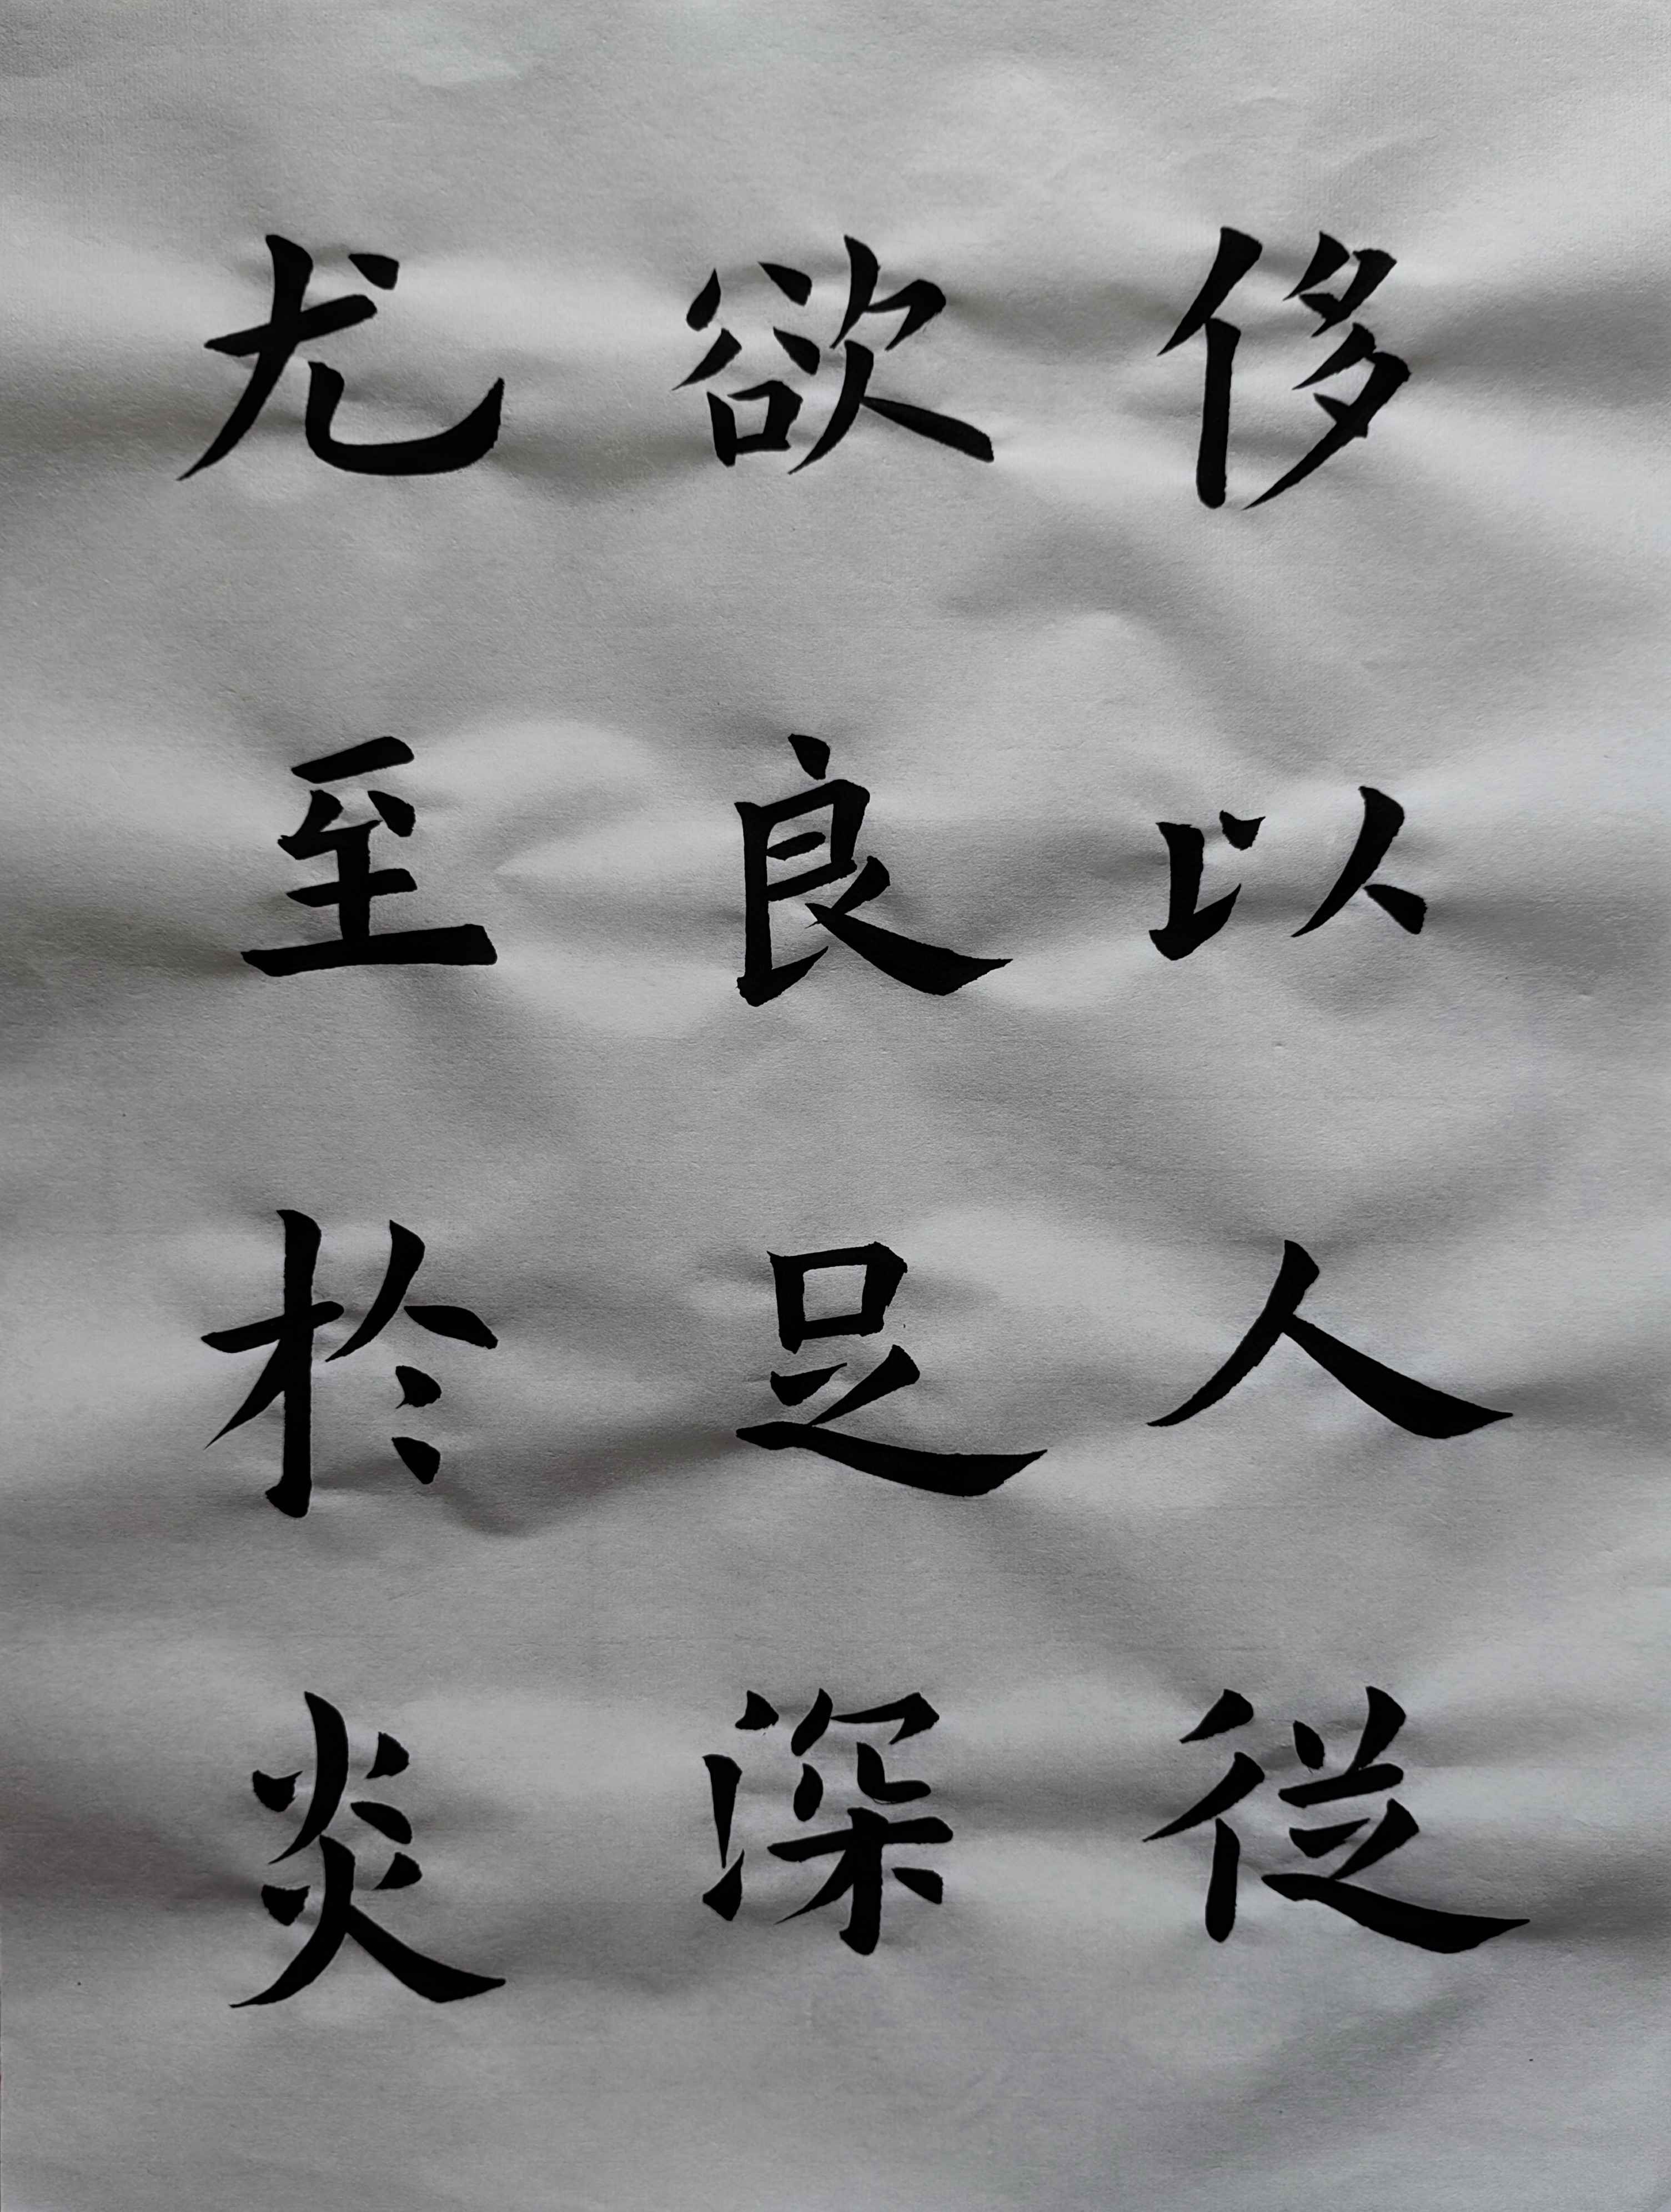 侈以人從
欲良足深
尤至於炎